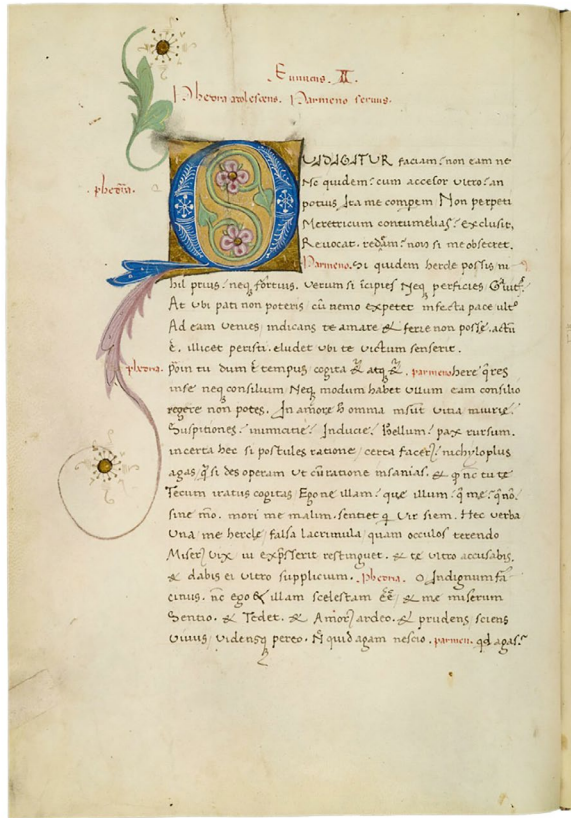 Eunucus. II.
Phedria adolescens. Parmeno seruus.
phedria.
QUID IGITUR faciam? non eam ne
Nc quidem? cum accersor ultro? an
potius Ita me compem Non perpeti
Meretricum contumelias? exclusit,
Reuocat. redeam? non si me obsecret.
Parmeno. Si quidem hercle possis ni
hil prius? neq fortius. verum si icipies Neq perficies Gnuit.
At ubi pati non poteris cu nemo expetet infecta pace ulto
Ad eam venies indicans te amare & ferre non posse. actu
e. illicet peristi. eludet ubi te victum senserit.
phedria. proin tu dum e tempus cogita & atq &. parmeno here q res
in se neq consilium Neq modum habet ullum eam consilio
regere non potes. In amore h omnia insut vitia iniurie?
Suspitiones? inimicitie? Inducie? Bellum? pax rursum.
incerta hec si postules ratione certa facere? nichyloplus
agas, q si des operam ut cu ratione insanias. & q nc tu te
Tecum iratus cogitas Ego ne illam? que illum? q me? q no?
sine mo. mori me malim. sentiet q vir siem. Hec verba
Una me hercle falsa lacrimula quam occulos terendo
Misere vix vi expresserit restinguet. & te vltro accusabis.
& dabis ei vltro supplicium. phedria. O Indignum fa
cinus. nc ego & illam scelestam ee. & me miserum
Sentio. & Tedet. & Amore ardeo. & prudens sciens
viuus vidensq pereo. N quid agam nescio. parmen. qd agas?